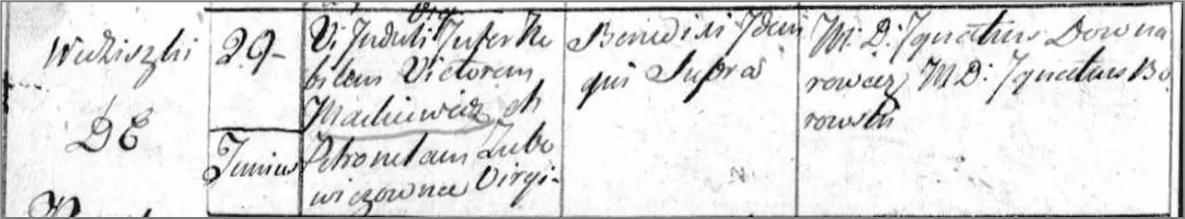 Widziszki
DE
29
Junius
Vi Indulti Inter No
bilem Victorem
Mackiewicz et
Petronelam Zubo
wiczowna Virgi-
Benedixi Idem
qui Supra
M: D: Ignatius Downa
rowicz M D: Ignatius Bo
rowski